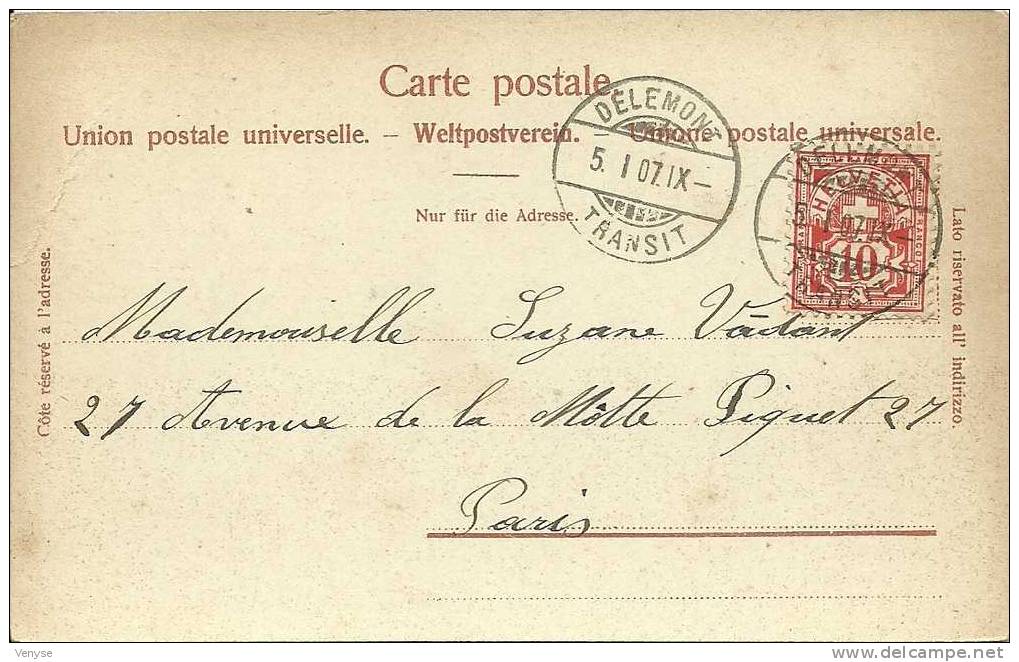 Carte postale.
Union postale universelle. — Weltpostverein. — Unione postale universale.
Nur für die Adresse.
DELÉMONT
5. I 07. IX —
TRANSIT
HELVETIA
10
5. I 07. IX
Côté réservé à l'adresse.
Lato riservato all' indirizzo.
Mademouiselle Suzane Vādant
27 Avenue de la Môtte Piquet 27
Paris
Venyse
www.delcampe.net